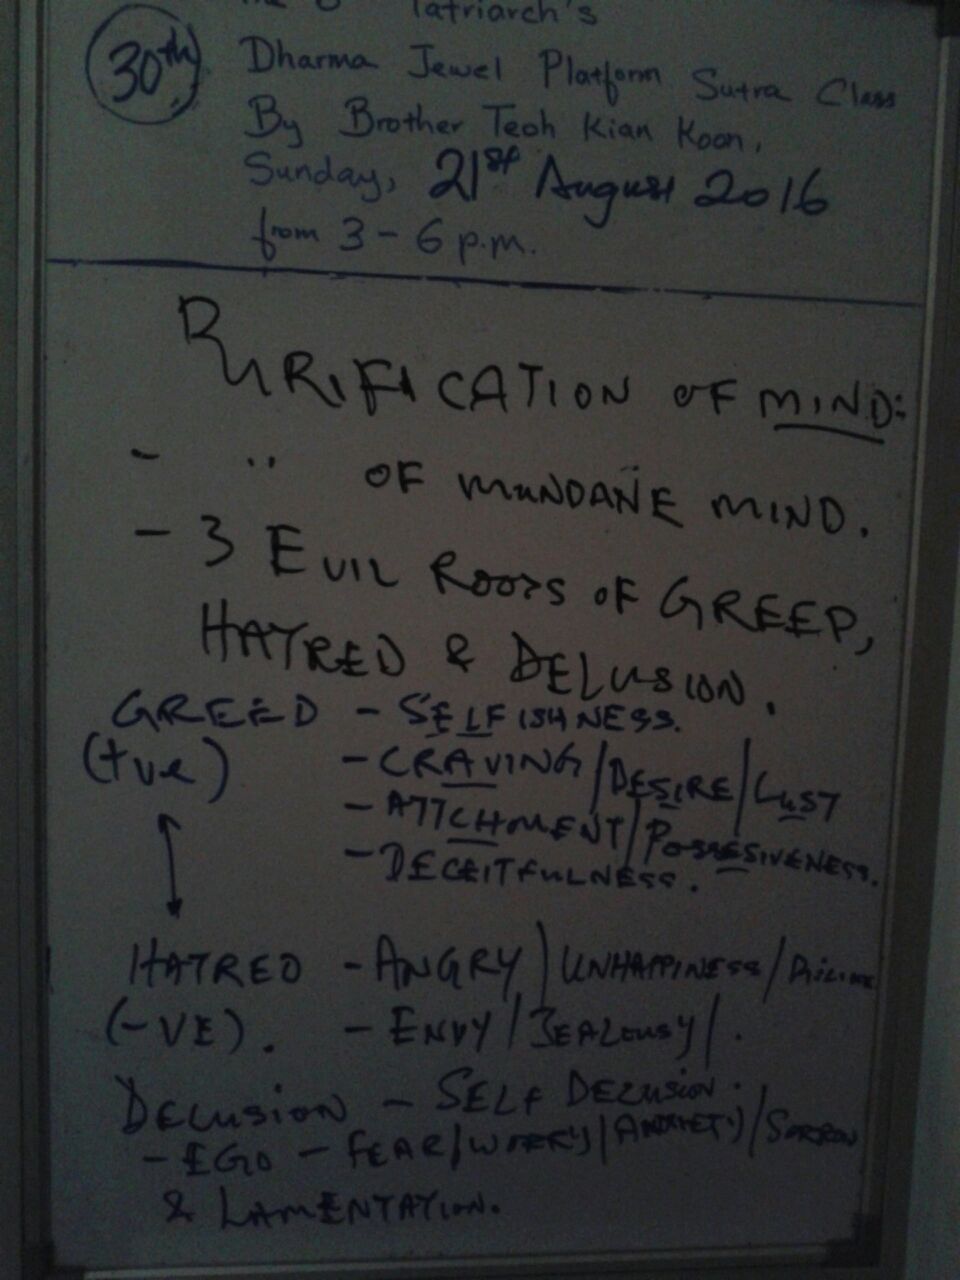 Patriarch's
30th Dharma Jewel Platform Sutra Class
By Brother Teoh Kian Koon,
Sunday, 21st August 2016
from 3 - 6 p.m.
PURIFICATION OF MIND:
- " OF MUNDANE MIND.
- 3 EVIL ROOTS OF GREED,
HATRED & DELUSION.
GREED - SELFISHNESS.
(+ve) - CRAVING/DESIRE/LUST
- ATTCHMENT/POSSESIVENESS.
- DECEITFULNESS.
HATRED - ANGRY/UNHAPPINESS/
(-VE). - ENVY/JEALOUSY/.
DELUSION - SELF DELUSION.
- EGO - FEAR/WORRY/ANXIETY/SORROW
& LAMENTATION.